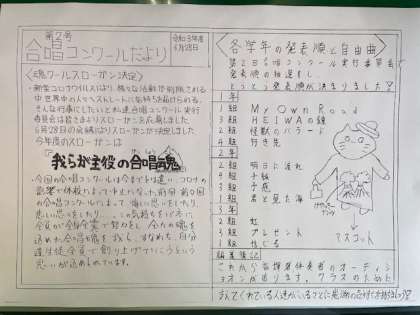 第2号
合唱コンクールだより
令和3年度
6月28日
〈魂ワールスローガン決定〉
新型コロナウイルスにより、様々な活動が制限される
中、世界中の人々でストレートに気持ち
そんな行事にしたいと私達合唱コンクール実行
委員会は皆さまよりスローガンを応募しました
6月28日の会議によりスローガンが決定しました
今年度のスローガンは
『我らが主役の合唱魂』
今回の合唱コンクールは今までとは違い、コロナの
影響で
の合唱コンクールによって悔しい思いをしたり、
悲しい思いをしたり、、、この気持ちをバネに
全員が全身全霊で努力をし
込めた合唱魂を我ら、すなわち、自分
達生徒全員で創り上げていこうという
思いが込められています
〈各学年の発表順と自由曲〉
第2回合唱コンクール実行委員会で
発表順の抽選をし、
とうとう発表順が決まりました!
1年
1組 My Own Road
3組 HEIWAの鐘
2組 怪獣のバラード
4組 行き先
2年
2組 明日に渡れ
4組 手紙
3組 予感
1組 君と見た海
3年
2組 虹
3組 プレゼント
1組 信じる
マスコット
編集後記
これから各指揮伴奏者のオーディシ
ョンがあります。クラスのために